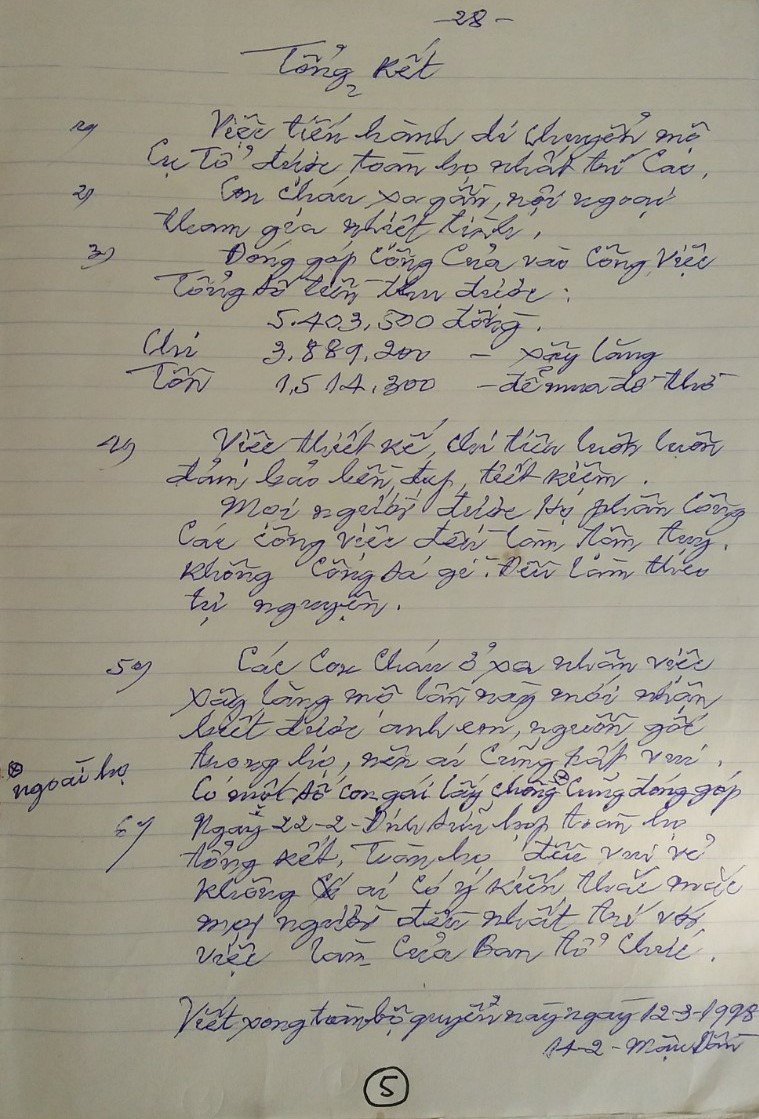 -28-
Tổng kết
1) Việc tiến hành di chuyển mộ
Cụ Tổ được toàn họ nhất trí cao.
2) Con cháu xa gần, nội ngoại
tham gia nhiệt tình.
3) Đóng góp công của vào công việc
Tổng số tiền thu được:
5.403.500 đồng.
Chi 3.889.200 - xây lăng
Tồn 1.514.300 - để mua đồ thờ
4) Việc thiết kế, chi tiêu luôn luôn
đảm bảo bền, đẹp, tiết kiệm.
Mọi người được họ phân công
các công việc đều làm tận tụy.
không công sá gì. Đều làm theo
tự nguyện.
5) Các con cháu ở xa nhân việc
xây lăng mộ lần này mới nhận
biết được anh em, nguồn gốc
trong họ, nên ai cũng rất vui.
Có một số con gái lấy chồng ⊗ cũng đóng góp
⊗ ngoài họ
6) Ngày 22-2-Đinh Sửu họp toàn họ
tổng kết. Toàn họ đều vui vẻ
không ai có ý kiến thắc mắc
mọi người đều nhất trí với
việc làm của Ban tổ chức.
Viết xong toàn bộ quyển này ngày 12-3-1998
14-2-Mậu Dần
5